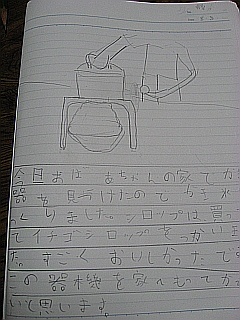 今日おばあちゃんの家でか
器を見づけたのでかき氷
つくりました。シロップは買っ
てイチゴシロップをつかいま
た。すごくおいしかったで
この器械を家へもってか
いと思います。